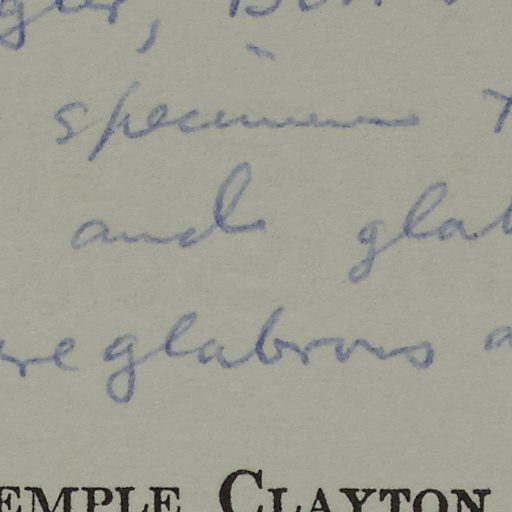 specimens
and glab
are glabrous a
EMPLE CLAYTON